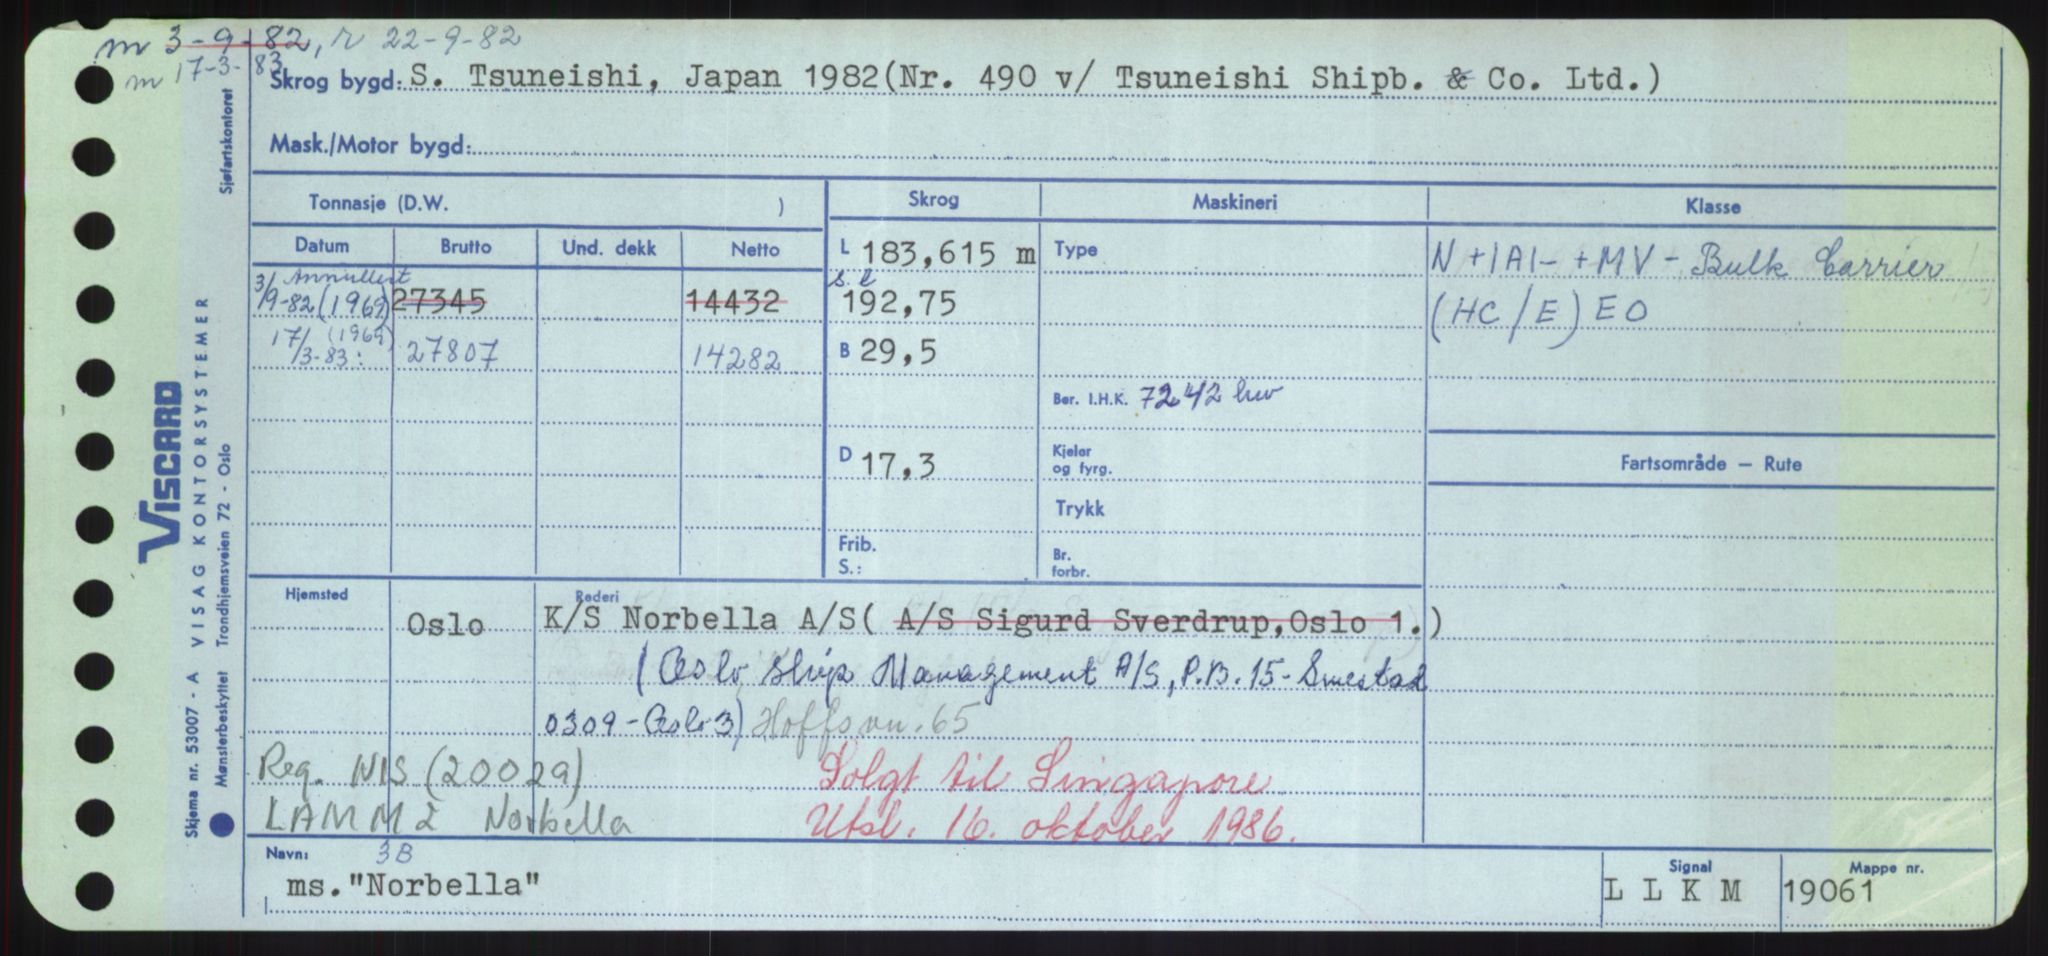 m 3-9-82, r 22-9-82
m 17-3-83
Skrog bygd: S. Tsuneishi, Japan 1982(Nr. 490 v/ Tsuneishi Shipb. & Co. Ltd.)
Mask./Motor bygd:
Tonnasje (D.W. )
Skrog
Maskineri
Klasse
Datum Brutto Und. dekk Netto
L 183,615 m
Type
N +1A1- +MV - Bulk Carrier
3/ Annullert
9-82 (1969) 27345 14432
s.l
192,75
(HC/E) EO
17/3-83: (1969) 27807 14282
B 29,5
Ber. I.H.K. 7242 kw
D 17,3
Kjeler
og fyrg.
Fartsområde — Rute
Trykk
Frib.
S.:
Br.
forbr.
Hjemsted
Rederi
Oslo
K/S Norbella A/S( A/S Sigurd Sverdrup,Oslo 1.)
(Oslo Ship Management A/S, P.B. 15-Smestad
0309-Oslo 3) Hoffsvn. 65
Reg. NIS (20029)
Solgt til Singapore
LAMM2 Norbella
Utsl. 16. oktober 1986.
Navn: 3B
ms."Norbella"
Signal
L L K M
Mappe nr.
19061
Sjøfartskontoret
VISCARD
VISAG KONTORSYSTEMER
Skjema nr. 53007 - A
Mønsterbeskyttet Trondhjemsveien 72 - Oslo